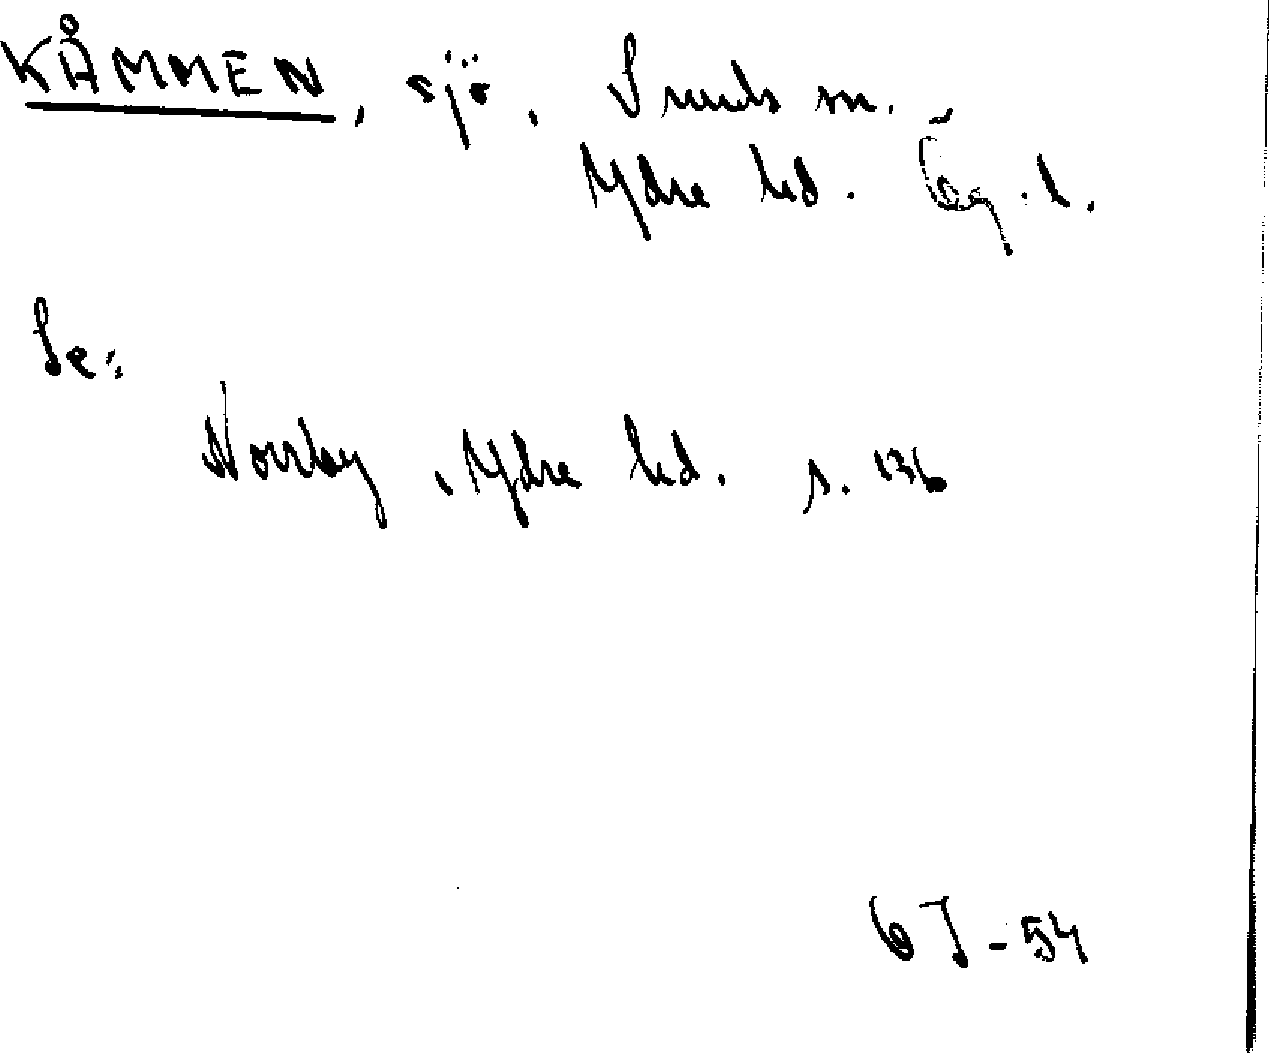 KÅMMEN, sjö, Sunds sn.
Ydre hd. Ög. l.
Se:
Norrby, Ydre hd. s. 136
GJ-54